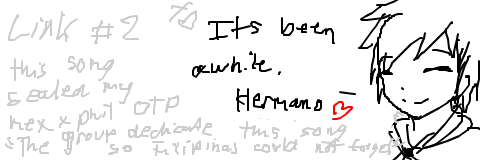 Link #2
Its been
awhile.
Hermano
this song
sealed my
mex x phil OTP
the group dedicate this song
so Filipinas could not forget